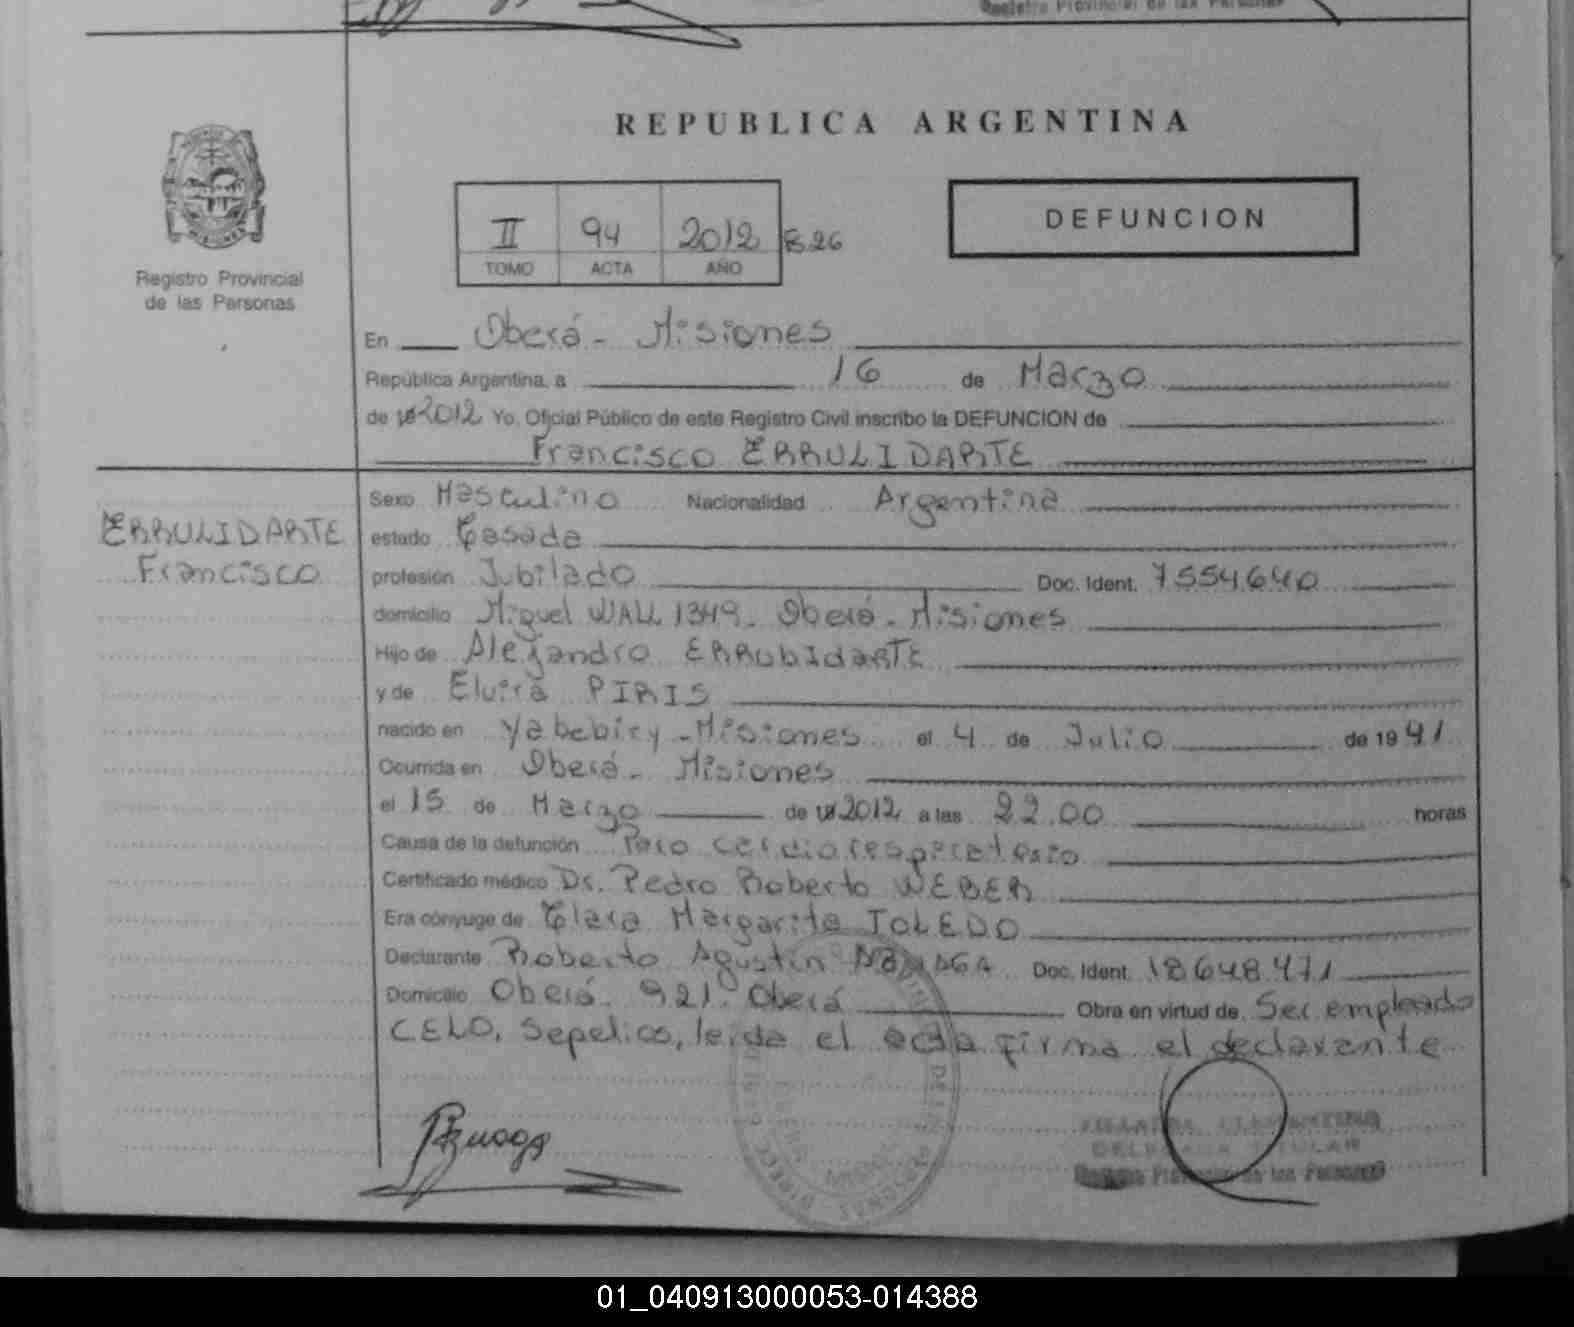 Registro Provincial de las Personas
REPUBLICA ARGENTINA
DEFUNCION
II 94 2012
TOMO ACTA AÑO
Registro Provincial
de las Personas
En Oberá - Misiones
República Argentina, a 16 de Marzo
de 2012 Yo, Oficial Público de este Registro Civil inscribo la DEFUNCION de
Francisco ERRULIDARTE
ERRULIDARTE
Francisco
Sexo Masculino Nacionalidad Argentina
estado Casado
profesión Jubilado Doc. Ident. 7554640
domicilio Miguel WALL 1349. Oberá - Misiones
Hijo de Alejandro ERRUbIdARTE
y de Elvira PIRIS
nacido en Yabebiry - Misiones el 4 de Julio de 1941
Ocurrida en Oberá - Misiones
el 15 de Marzo de 2012 a las 22.00 horas
Causa de la defunción Paro cardiorespiratorio
Certificado médico Dr. Pedro Roberto WEBER
Era cónyuge de Clara Margarita TOLEDO
Declarante Roberto Agustín Doc. Ident. 18648.471
Domicilio Oberá 921. Oberá Obra en virtud de Ser empleado
CELO, Sepelios, leída el acta firma el declarante
DELEGADA TITULAR
Registro Provincial de las Personas
01_040913000053-014388